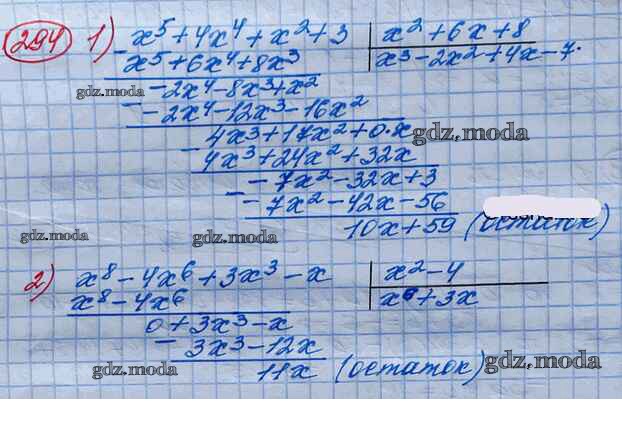 294 1) x⁵+4x⁴+x²+3 | x²+6x+8
- x⁵+6x⁴+8x³ | x³-2x²+4x-7.
-2x⁴-8x³+x²
gdz.moda
- -2x⁴-12x³-16x²
4x³+17x²+0·x
gdz.moda
- 4x³+24x²+32x
-7x²-32x+3
- -7x²-42x-56
10x+59 (остаток)
gdz.moda gdz.moda
2) x⁸-4x⁶+3x³-x | x²-4
x⁸-4x⁶ | x⁶+3x
0+3x³-x
- 3x³-12x
11x (остаток)
gdz.moda gdz.moda